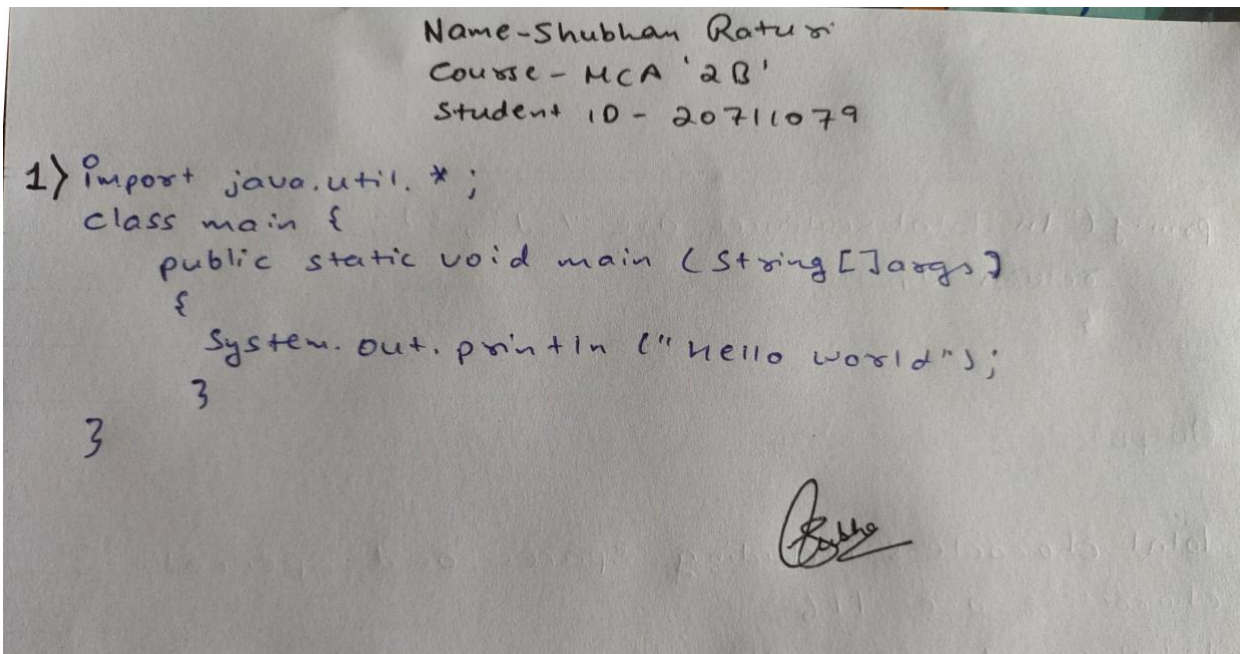 Name-Shubhan Raturi
Course - MCA '2B'
Student ID - 20711079
1) import java.util.*;
class main {
public static void main (String[]args)
{
System.out.println ("Hello world");
}
}